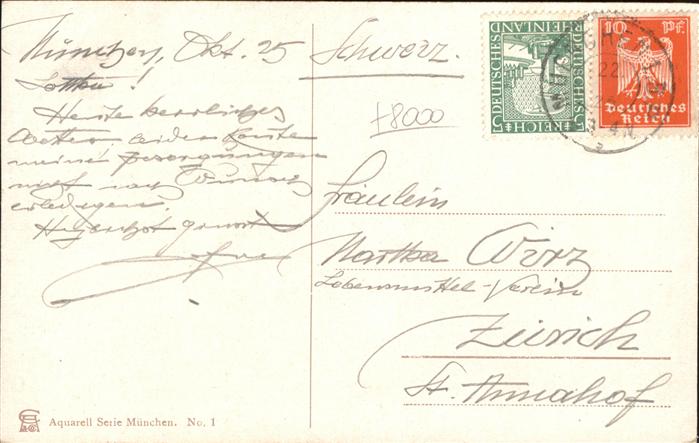 München, Okt. 25
Heute herrliches
Wetter, leider konnte
meine Besorgungen
nicht nach Wunsch
erledigen.
Schweiz.
+8000
Fräulein
Martha Wirz
Lebensmittel-Verein
Zürich
St. Annahof
DEUTSCHES REICH
DEUTSCHES RHEINLAND
5
10 Pf.
Deutsches
Reich
MÜNCHEN
Aquarell Serie München. No. 1